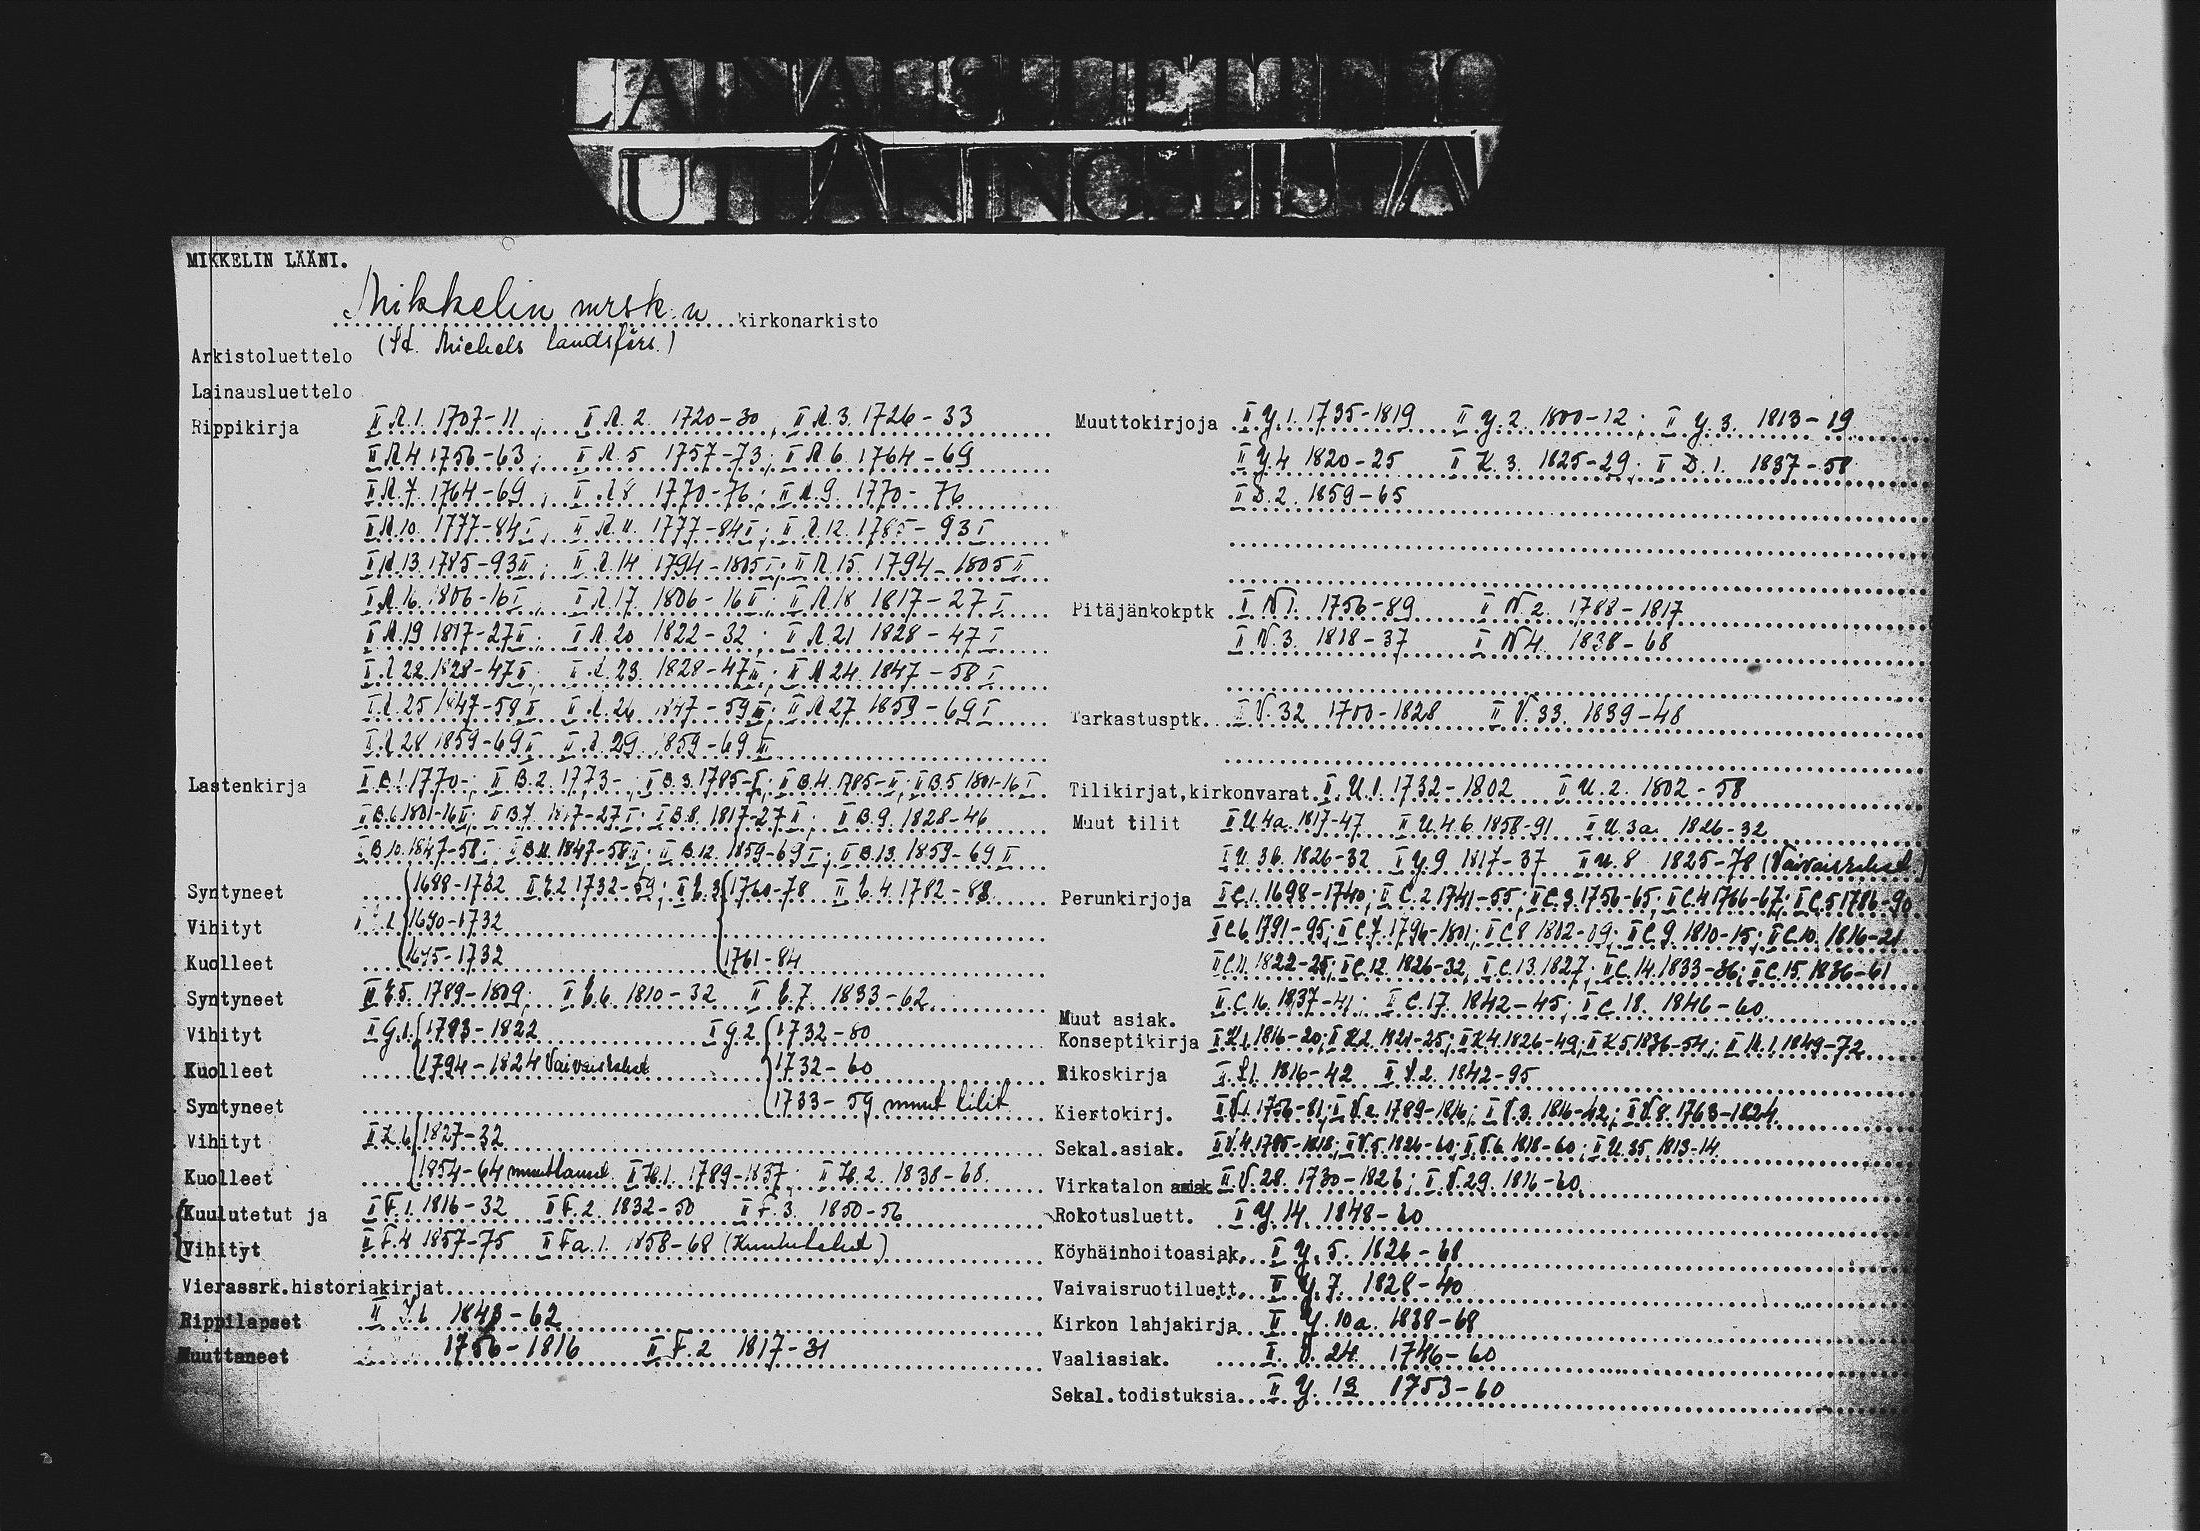 LAINAUSLUETTELO
UTLÅNINGSLISTA
MIKKELIN LÄÄNI.
Mikkelin mrsk:n kirkonarkisto
(St. Michels landsförs.)
Arkistoluettelo
Lainausluettelo
Rippikirja II A.1. 1707-11, II A.2. 1720-30, II A.3. 1726-33
II A 4 1756-63; II A.5 1757-73; II A 6 1764-69
II A.7. 1764-69; II A 8 1770-76; II A.9. 1770-76
II A.10. 1777-84 I, II A.11. 1777-84 I; II A.12. 1785-93 I
II A.13. 1785-93 II; II A.14 1794-1805 I; II A.15. 1794-1805 II
II A.16. 1806-16 I, II A.17. 1806-16 II; II A.18 1817-27 I
II A.19 1817-27 II; II A.20 1822-32; II A.21 1828-47 I
II A 22. 1828-47 II; II A.23. 1828-47 III; II A 24. 1847-58 I
II A.25 1847-58 II II A.26 1847-59 III; II A 27 1859-69 I
II A 28 1859-69 II II A.29. 1859-69 III
Lastenkirja II B.1. 1770-; II B.2. 1773-; II B.3. 1785-I; II B.4. 1785-II; II B.5 1801-16 I
II B.6. 1801-16 II; II B.7. 1817-27 I; II B.8. 1817-27 II; II B.9. 1828-46
II B.10. 1847-58 I II B.11. 1847-58 II; II B.12. 1859-69 I; II B.13. 1859-69 II
Syntyneet 1688-1732 II E.2 1732-59; II E.3 1760-78 II E.4. 1782-88
Vihityt 1690-1732
Kuolleet 1695-1732 1761-84
Syntyneet II E.5. 1789-1809; II E.6. 1810-32 II E.7. 1833-62
Vihityt II G.1. 1793-1822 II G.2 1732-80
Kuolleet 1794-1824 Vaivaisrahat 1732-60
Syntyneet 1733-59 muut tilit
Vihityt II K.6 1827-32
Kuolleet 1854-64 muuttaneet II H.1. 1789-1837; II H.2. 1838-68.
Kuulutetut ja II F.1. 1816-32 II F.2. 1832-50 II F.3. 1850-56
Vihityt II F.4 1857-75 II Fa.1. 1858-68 (Kuulutetut)
Vierassrk.historiakirjat
Rippilapset II 1843-62
Muuttaneet 1756-1816 II F.2 1817-31
Muuttokirjoja II Y.1. 1735-1819 II Y.2. 1800-12; II Y.3. 1813-19
II Y.4 1820-25 II K.3. 1825-29; II D.1. 1837-58
II D.2. 1859-65
Pitäjänkokptk II N 1. 1756-89 II N.2. 1788-1817
II N.3. 1818-37 II N 4. 1838-68
Tarkastusptk. II V.32 1700-1828 II V.33. 1839-48
Tilikirjat,kirkonvarat II U.1. 1732-1802 II U.2. 1802-58
Muut tilit II U.4a. 1817-47 II U.4.b. 1858-91 II U.3a. 1826-32
II U.3b. 1826-32 II Y.9 1817-37 II U.8 1825-78 (Vaivaisrahat)
Perunkirjoja II C.1. 1698-1740; II C.2 1741-55; II C.3. 1756-65; II C.4 1766-67; II C.5 1786-90
II C.6 1791-95; II C.7. 1796-1801; II C 8 1802-09; II C 9. 1810-15; II C.10. 1816-21
II C.11. 1822-25; II C.12. 1826-32; II C.13. 1827; II C.14. 1833-36; II C.15. 1836-61
II C.16. 1837-41; II C.17. 1842-45; II C 18. 1846-60
Muut asiak.
Konseptikirja II K.1. 1816-20; II K.2. 1821-25; II K 4. 1826-49; II K 5 1836-54; II M.1. 1849-72
Rikoskirja II L1. 1816-42 II L.2. 1842-95
Kiertokirj. II V.1. 1756-81; II V.2. 1789-1816; II V.3. 1816-42; II V.8. 1763-1824
Sekal.asiak. II V.4. 1795-1818; II V.5 1826-60; II V.6. 1818-60; II U.35. 1813-14
Virkatalon asiak. II V.28. 1730-1826; II V.29. 1816-60
Rokotusluett. II Y.14. 1848-60
Köyhäinhoitoasiak. II Y.5. 1826-68
Vaivaisruotiluett. II Y.7. 1828-40
Kirkon lahjakirja II Y.10a. 1838-68
Vaaliasiak. II V.24. 1746-60
Sekal.todistuksia II Y.12 1753-60